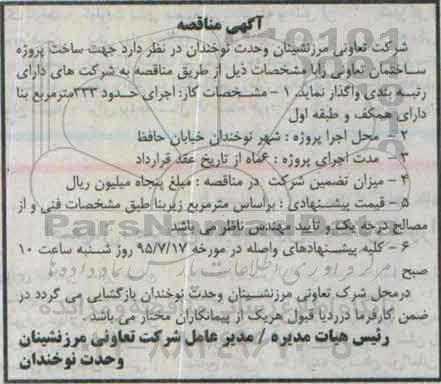 آگهی مناقصه
شرکت تعاونی مرزنشینان وحدت نوخندان در نظر دارد جهت ساخت پروژه
ساختمان تعاونی رابا مشخصات ذیل از طریق مناقصه به شرکت های دارای
رتبه بندی واگذار نماید. ۱ - مشخصات کار: اجرای حدود ۳۳۳مترمربع بنا
دارای همکف و طبقه اول
۲ - محل اجرا پروژه : شهر نوخندان خیابان حافظ
۳ - مدت اجرای پروژه : ۶ماه از تاریخ عقد قرارداد
۴ - میزان تضمین شرکت در مناقصه : مبلغ پنجاه میلیون ریال
۵ - قیمت پیشنهادی : براساس مترمربع زیربنا طبق مشخصات فنی و از
مصالح درجه یک و تایید مهندس ناظر می باشد
۶ - کلیه پیشنهادهای واصله در مورخه ۹۵/۷/۱۷ روز شنبه ساعت ۱۰
صبح
درمحل شرک تعاونی مرزنشینان وحدت نوخندان بازگشایی می گردد در
ضمن کارفرما دررد‌یا قبول هریک از پیمانکاران مختار می باشد
رئیس هیات مدیره / مدیر عامل شرکت تعاونی مرزنشینان
وحدت نوخندان
ParsNamadData